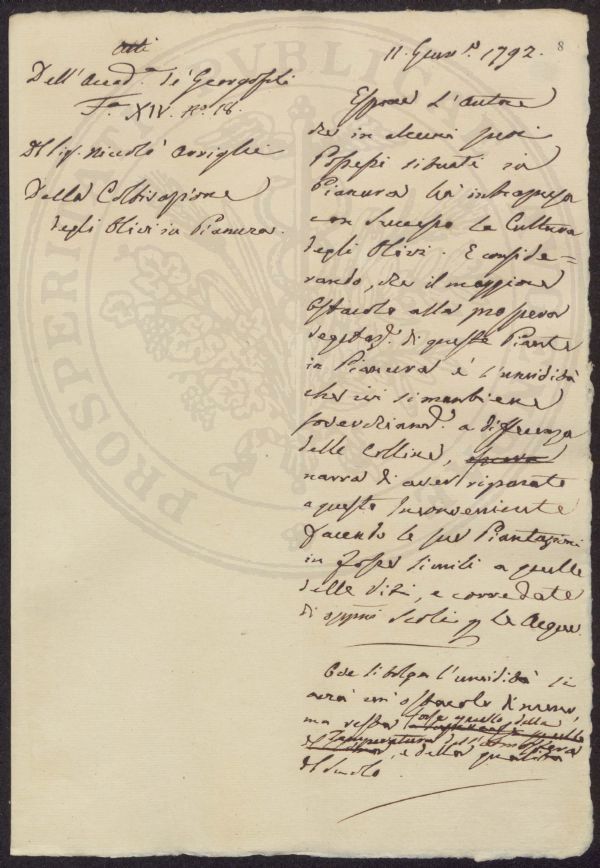 Atti
Dell'Accad.a de' Georgofili
F.a XIV. N.o 18.
Del Sig. Niccolò Arrighi
Della Coltivazione
degli Olivi in Pianura.
11. 1792.
8
Espone L'Autore
che in alcuni suoi
Possessi situati in
Pianura ha intrapresa
con Successo la Cultura
degli Olivi. E conside=
rando, che il maggiore
Ostacolo alla prospera
vegetaz.e di queste Piante
in Pianura è l'umidità
che ivi si mantiene
a differenza
delle Colline,
narra di aver riparato
a questo Inconveniente
facendo le sue Piantazioni
in fosse simili a quelle
delle Viti, e corredate
di oppni Scoli p le Acque.
Ove si tolga l'umidità si
avrà un ostacolo di meno,
ma resta forse quello della
temperatura dell'Atmosfera
e della qualità
del Suolo.
PROSPERITATI PUBLICAE